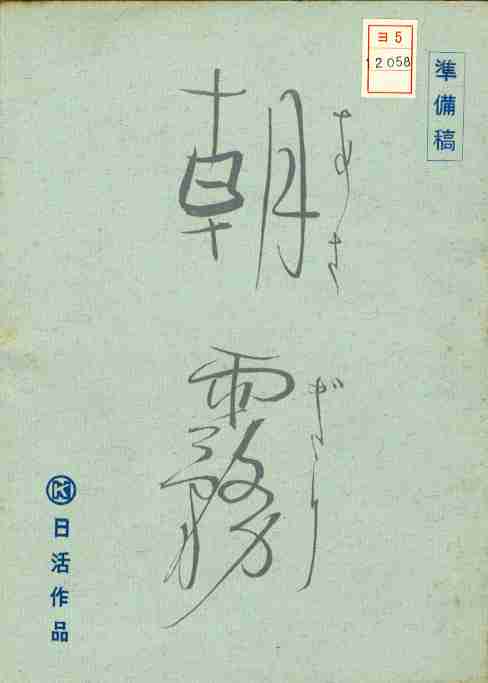 ヨ5
12058
準備稿
朝霧
あさぎり
K
日活作品